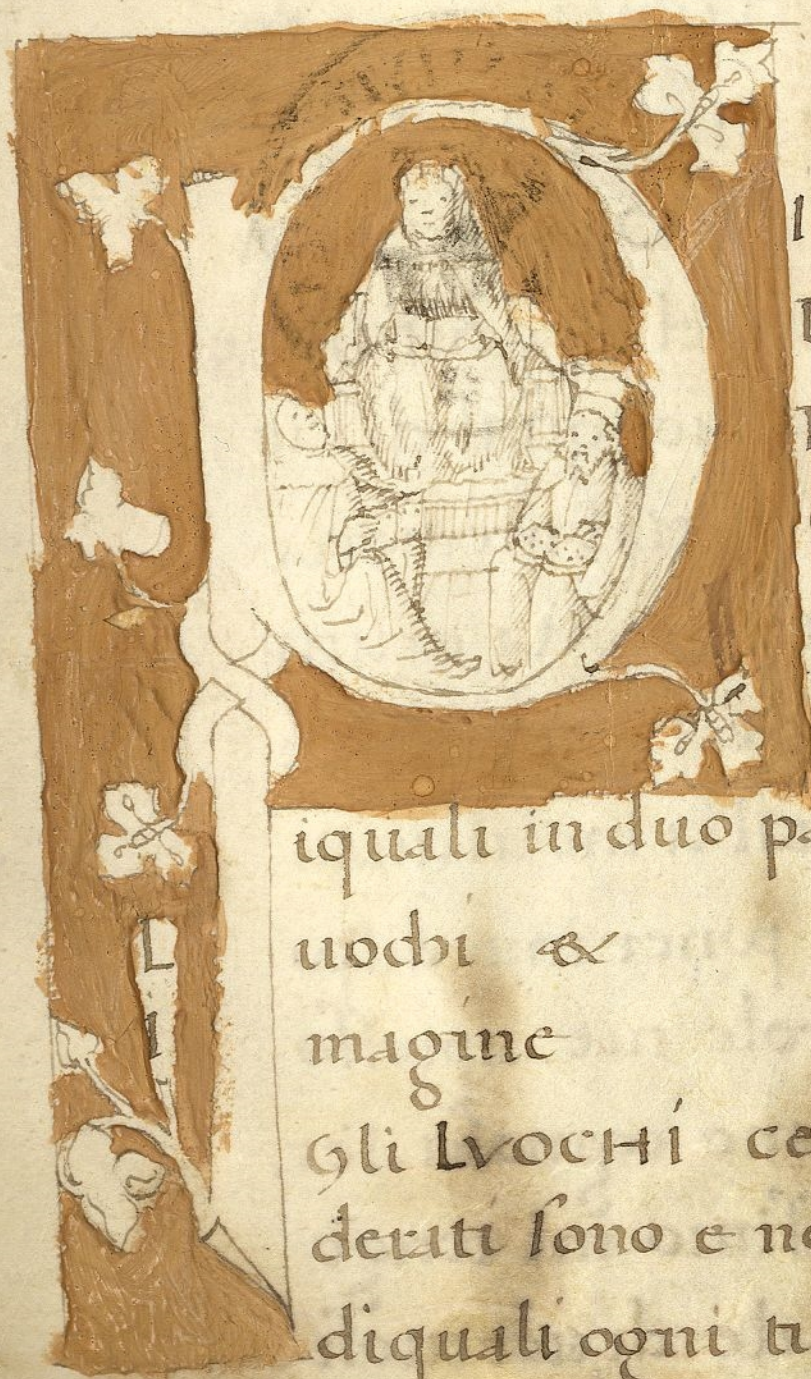 P
iquali in duo pa
L uochi &
I magine
Gli LVOCHI ce
derati sono e no
diquali ogni tu